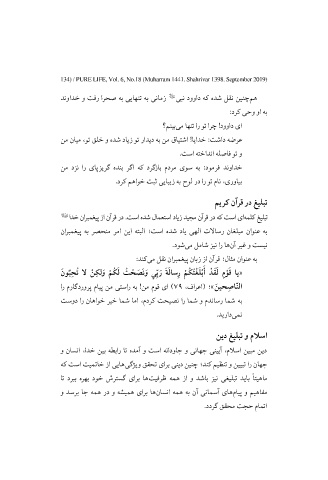 134) / PURE LIFE, Vol. 6, No.18 (Muharram 1441, Shahrivar 1398, September 2019)
هم‌چنین نقل شده که داوود نبی زمانی به تنهایی به صحرا رفت و خداوند
به او وحی کرد:
ای داوود! چرا تو را تنها می‌بینم؟
عرضه داشت: خدایا! اشتیاق من به دیدار تو زیاد شده و خلق تو، میان من
و تو فاصله انداخته است.
خداوند فرمود: به سوی مردم بازگرد که اگر بنده گریزپای را نزد من
بیاوری، نام تو را در لوح به زیبایی ثبت خواهم کرد.
تبلیغ در قرآن کریم
تبلیغ کلمه‌ای است که در قرآن مجید زیاد استعمال شده است. در قرآن از پیغمبران خدا
به عنوان مبلغان رسالات الهی یاد شده است؛ البته این امر منحصر به پیغمبران
نیست و غیر آن‌ها را نیز شامل می‌شود.
به عنوان مثال؛ قرآن از زبان پیغمبران نقل می‌کند:
«یا قَوْمِ لَقَدْ أَبْلَغْتُکُمْ رِسالَةَ رَبِّی وَنَصَحْتُ لَکُمْ وَلکِنْ لا تُحِبُّونَ
النَّاصِحِینَ»؛ (اعراف، ۷۹) ای قوم من! به راستی من پیام پروردگارم را
به شما رساندم و شما را نصیحت کردم، اما شما خیر خواهان را دوست
نمی‌دارید.
اسلام و تبلیغ دین
دین مبین اسلام، آیینی جهانی و جاودانه است و آمده تا رابطه بین خدا، انسان و
جهان را تبیین و تنظیم کند؛ چنین دینی برای تحقق ویژگی‌هایی از خاتمیت است که
ماهیتاً باید تبلیغی نیز باشد و از همه ظرفیت‌ها برای گسترش خود بهره ببرد تا
مفاهیم و پیام‌های آسمانی آن به همه انسان‌ها برای همیشه و در همه جا برسد و
اتمام حجت محقق گردد.